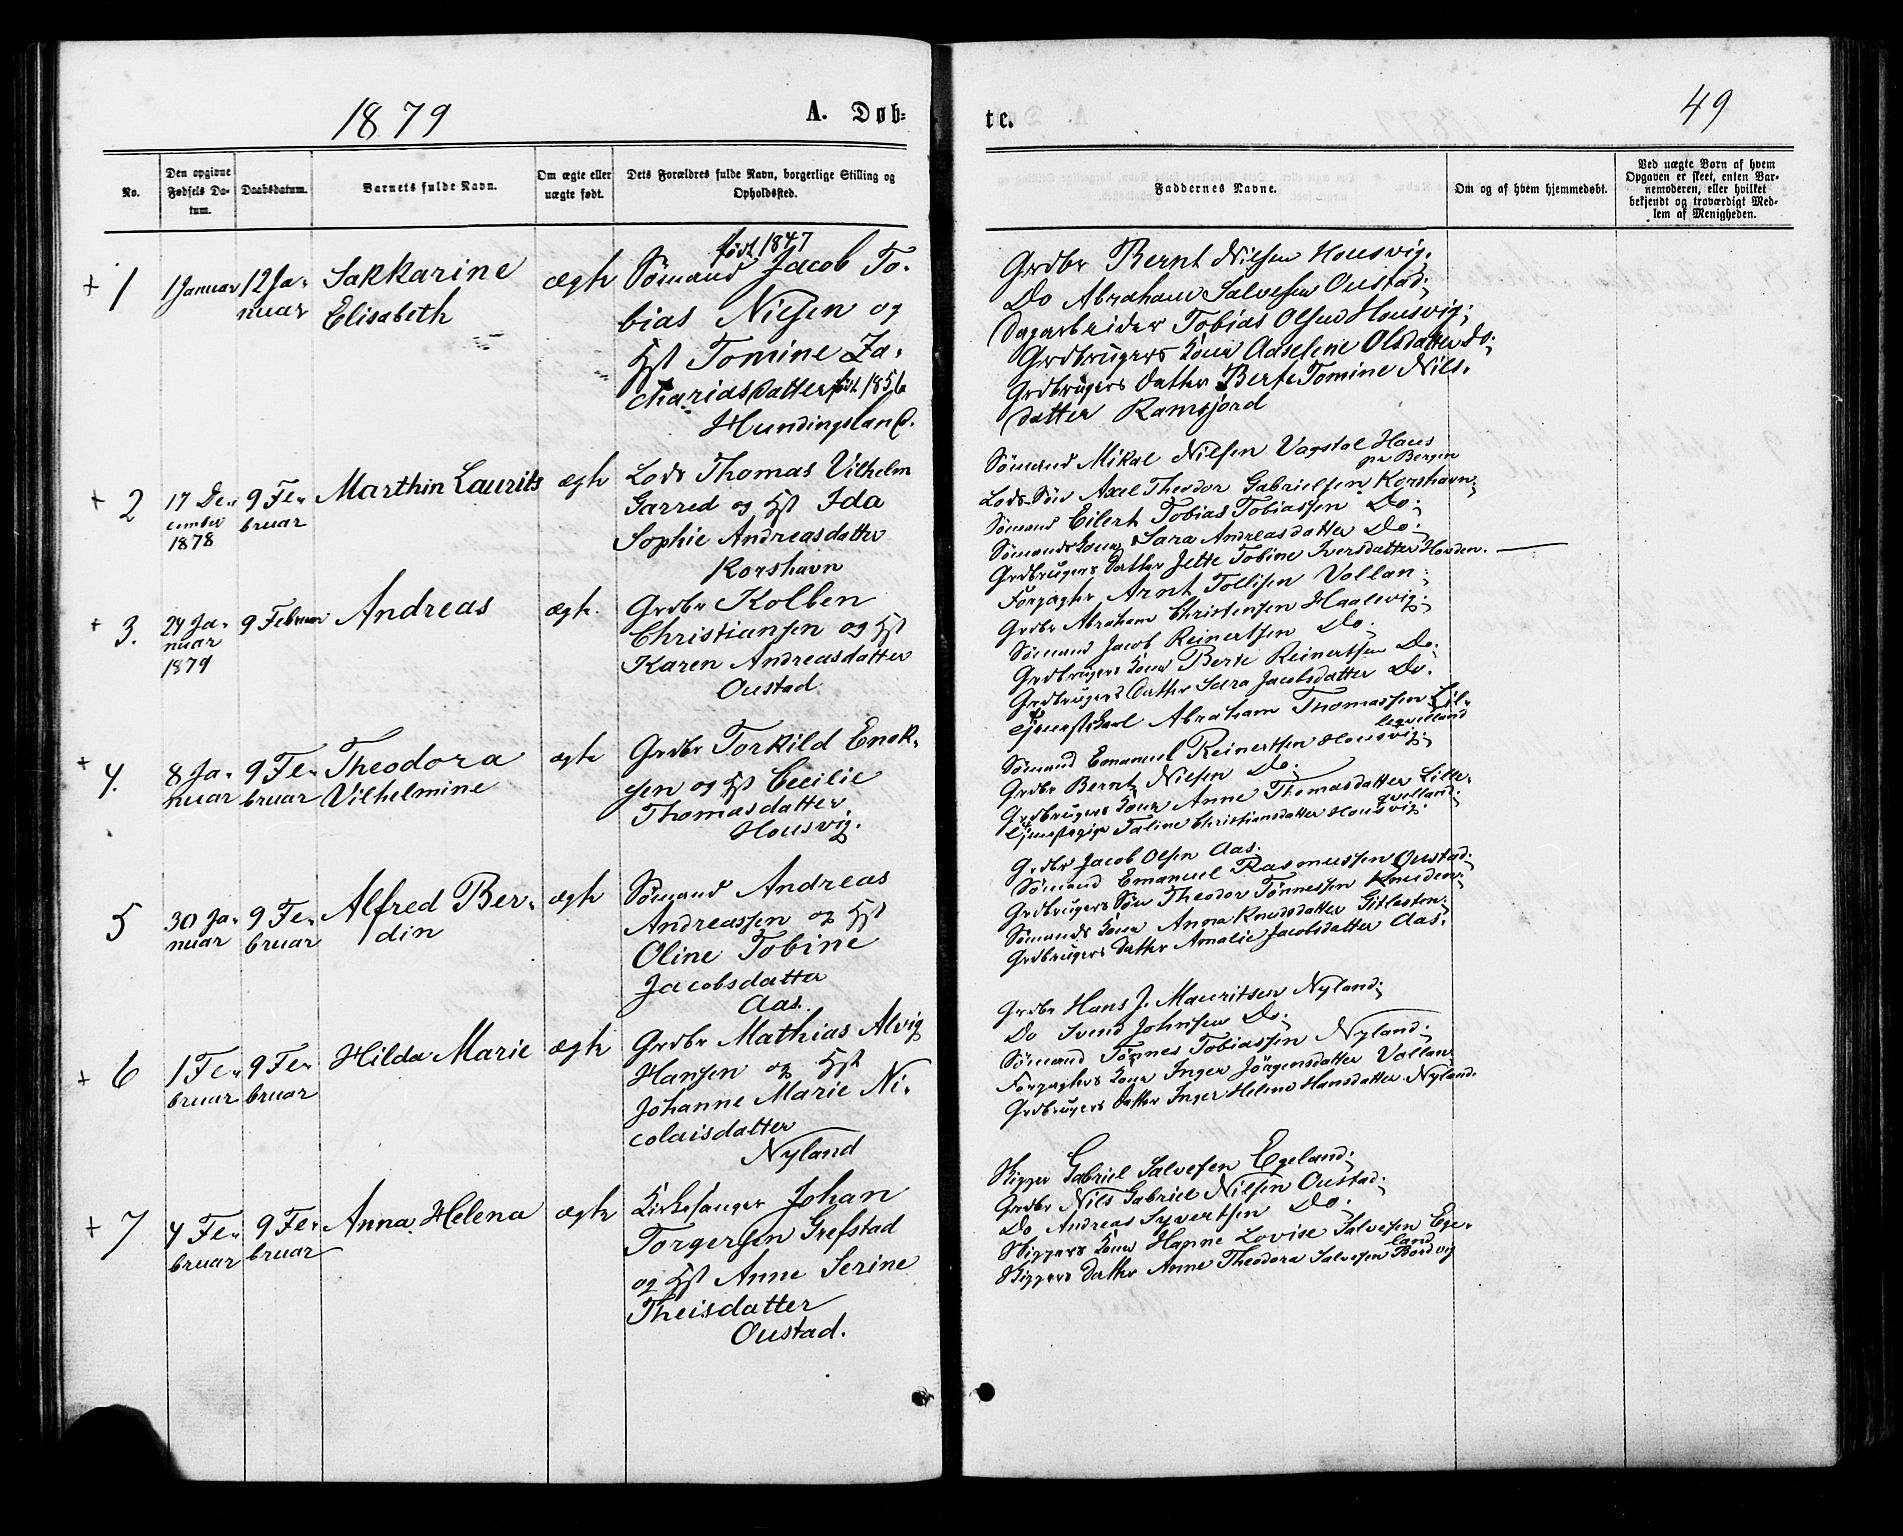 1879
A. Døb=
te.
49
No.
Den opgivne Fødsels Da-
tum.
Daabsdatum.
Barnets fulde Navn.
Om ægte eller
uægte født.
Dets Forældres fulde Navn, borgerlige Stilling og
Opholdssted.
Faddernes Navne.
Om og af hvem hjemmedøbt.
Ved uægte Børn af hvem
Opgaven er skeet, enten Bar-
nemoderen, eller hvilket
bekjendt og troværdigt Med-
lem af Menigheden.
+ 1
1 Januar
12 Ja-
nuar
Sakkarine
Elisabeth
ægte
født 1847
Sømand Jacob To-
bias Nielsen og
Hst Tomine Za-
chariasdatter født 1856
Hundingsland.
Grdbr Bernt Nielsen Housvig.
Do Abraham Salvesen Oustad;
Dagarbeider Tobias Olsen Housvig;
Grdbrugers Kone Aaselene Olsdatter Do;
Grdbrugers Datter Berte Tomine Nils-
datter Ramsjord
+ 2
17 De-
cember
1878
9 Fe-
bruar
Marthin Laurits
ægte
Lods Thomas Vilhelm
Garred og Hst Ida
Sophie Andreasdatter
Korshavn
Sømand Mikal Nilsen Vagstøl Haus
pr Bergen
Lods-Søn Axel Theodor Gabrielsen Korshavn;
Sømand Eilert Tobias Tobiassen Do;
Sømands Kone Sara Andreasdatter Do;
Grdbrugers Datter Jette Tobine Iversdatter
+ 3.
24 Ja-
nuar
1879
9 Februar
Andreas
ægte.
Grdbr Kolben
Christiansen og Hst
Karen Andreasdatter
Oustad
Forpagter Arnt Tollisen Vollan;
Grdbr Abraham Christensen Haalevig;
Sømand Jacob Reinertsen Do;
Grdbrugers Kone Berte Reinertsen Do;
Grdbrugers Datter Sara Jacobsdatter Do.
+ 4.
8 Ja-
nuar
9 Fe-
bruar
Theodora
Vilhelmine
ægte
Grdbr Torkild Enok-
sen og Hst Cecilie
Thomasdatter
Housvig.
Tjenestekarl Abraham Thomassen Lil-
leqvelland
Sømand Emanuel Reinertsen Housvig;
Grdbr Bernt Nielsen Do;
Grdbrugers Kone Anne Thomasdatter Lille-
qvelland;
Tjenestepige Taline Christiansdatter Housvig.
5
30 Ja-
nuar
9 Fe-
bruar
Alfred Ber-
din
ægte
Sømand Andreas
Andreassen og Hst
Oline Tobine
Jacobsdatter
Aas.
Grdbr Jacob Olsen Aas.
Sømand Emanuel Rasmussen Oustad;
Grdbrugers Søn Theodor Tønnessen
Sømands Kone Anna Knudsdatter Gitlesten;
Grdbrugers Datter Amalie Jacobsdatter Aas.
+ 6
1 Fe-
bruar
9 Fe-
bruar
Hilda Marie
ægte
Grdbr Mathias Alvig
Hansen og Hst
Johanne Marie Ni-
colaisdatter
Nyland
Grdbr Hans J. Mauritsen Nyland;
Do Svend Johnsen Do;
Sømand Tønnes Tobiassen Nyland;
Forpagters Kone Inger Jörgensdatter Vollan
Grdbrugers Datter Inger Helene Hansdatter Nyland.
+ 7
4 Fe-
bruar
9 Fe-
bruar
Anna Helena
ægte
Kirkesanger Johan
Torgersen Grefstad
og Hst Anne Serine
Theisdatter
Oustad.
Skipper Gabriel Salvesen Egeland;
Grdbr Nils Gabriel Nilsen Oustad;
Do Andreas Syvertsen Do;
Skippers Kone Hanne Lovise Salvesen Ege-
land
Skippers Datter Anne Theodora Salvesen